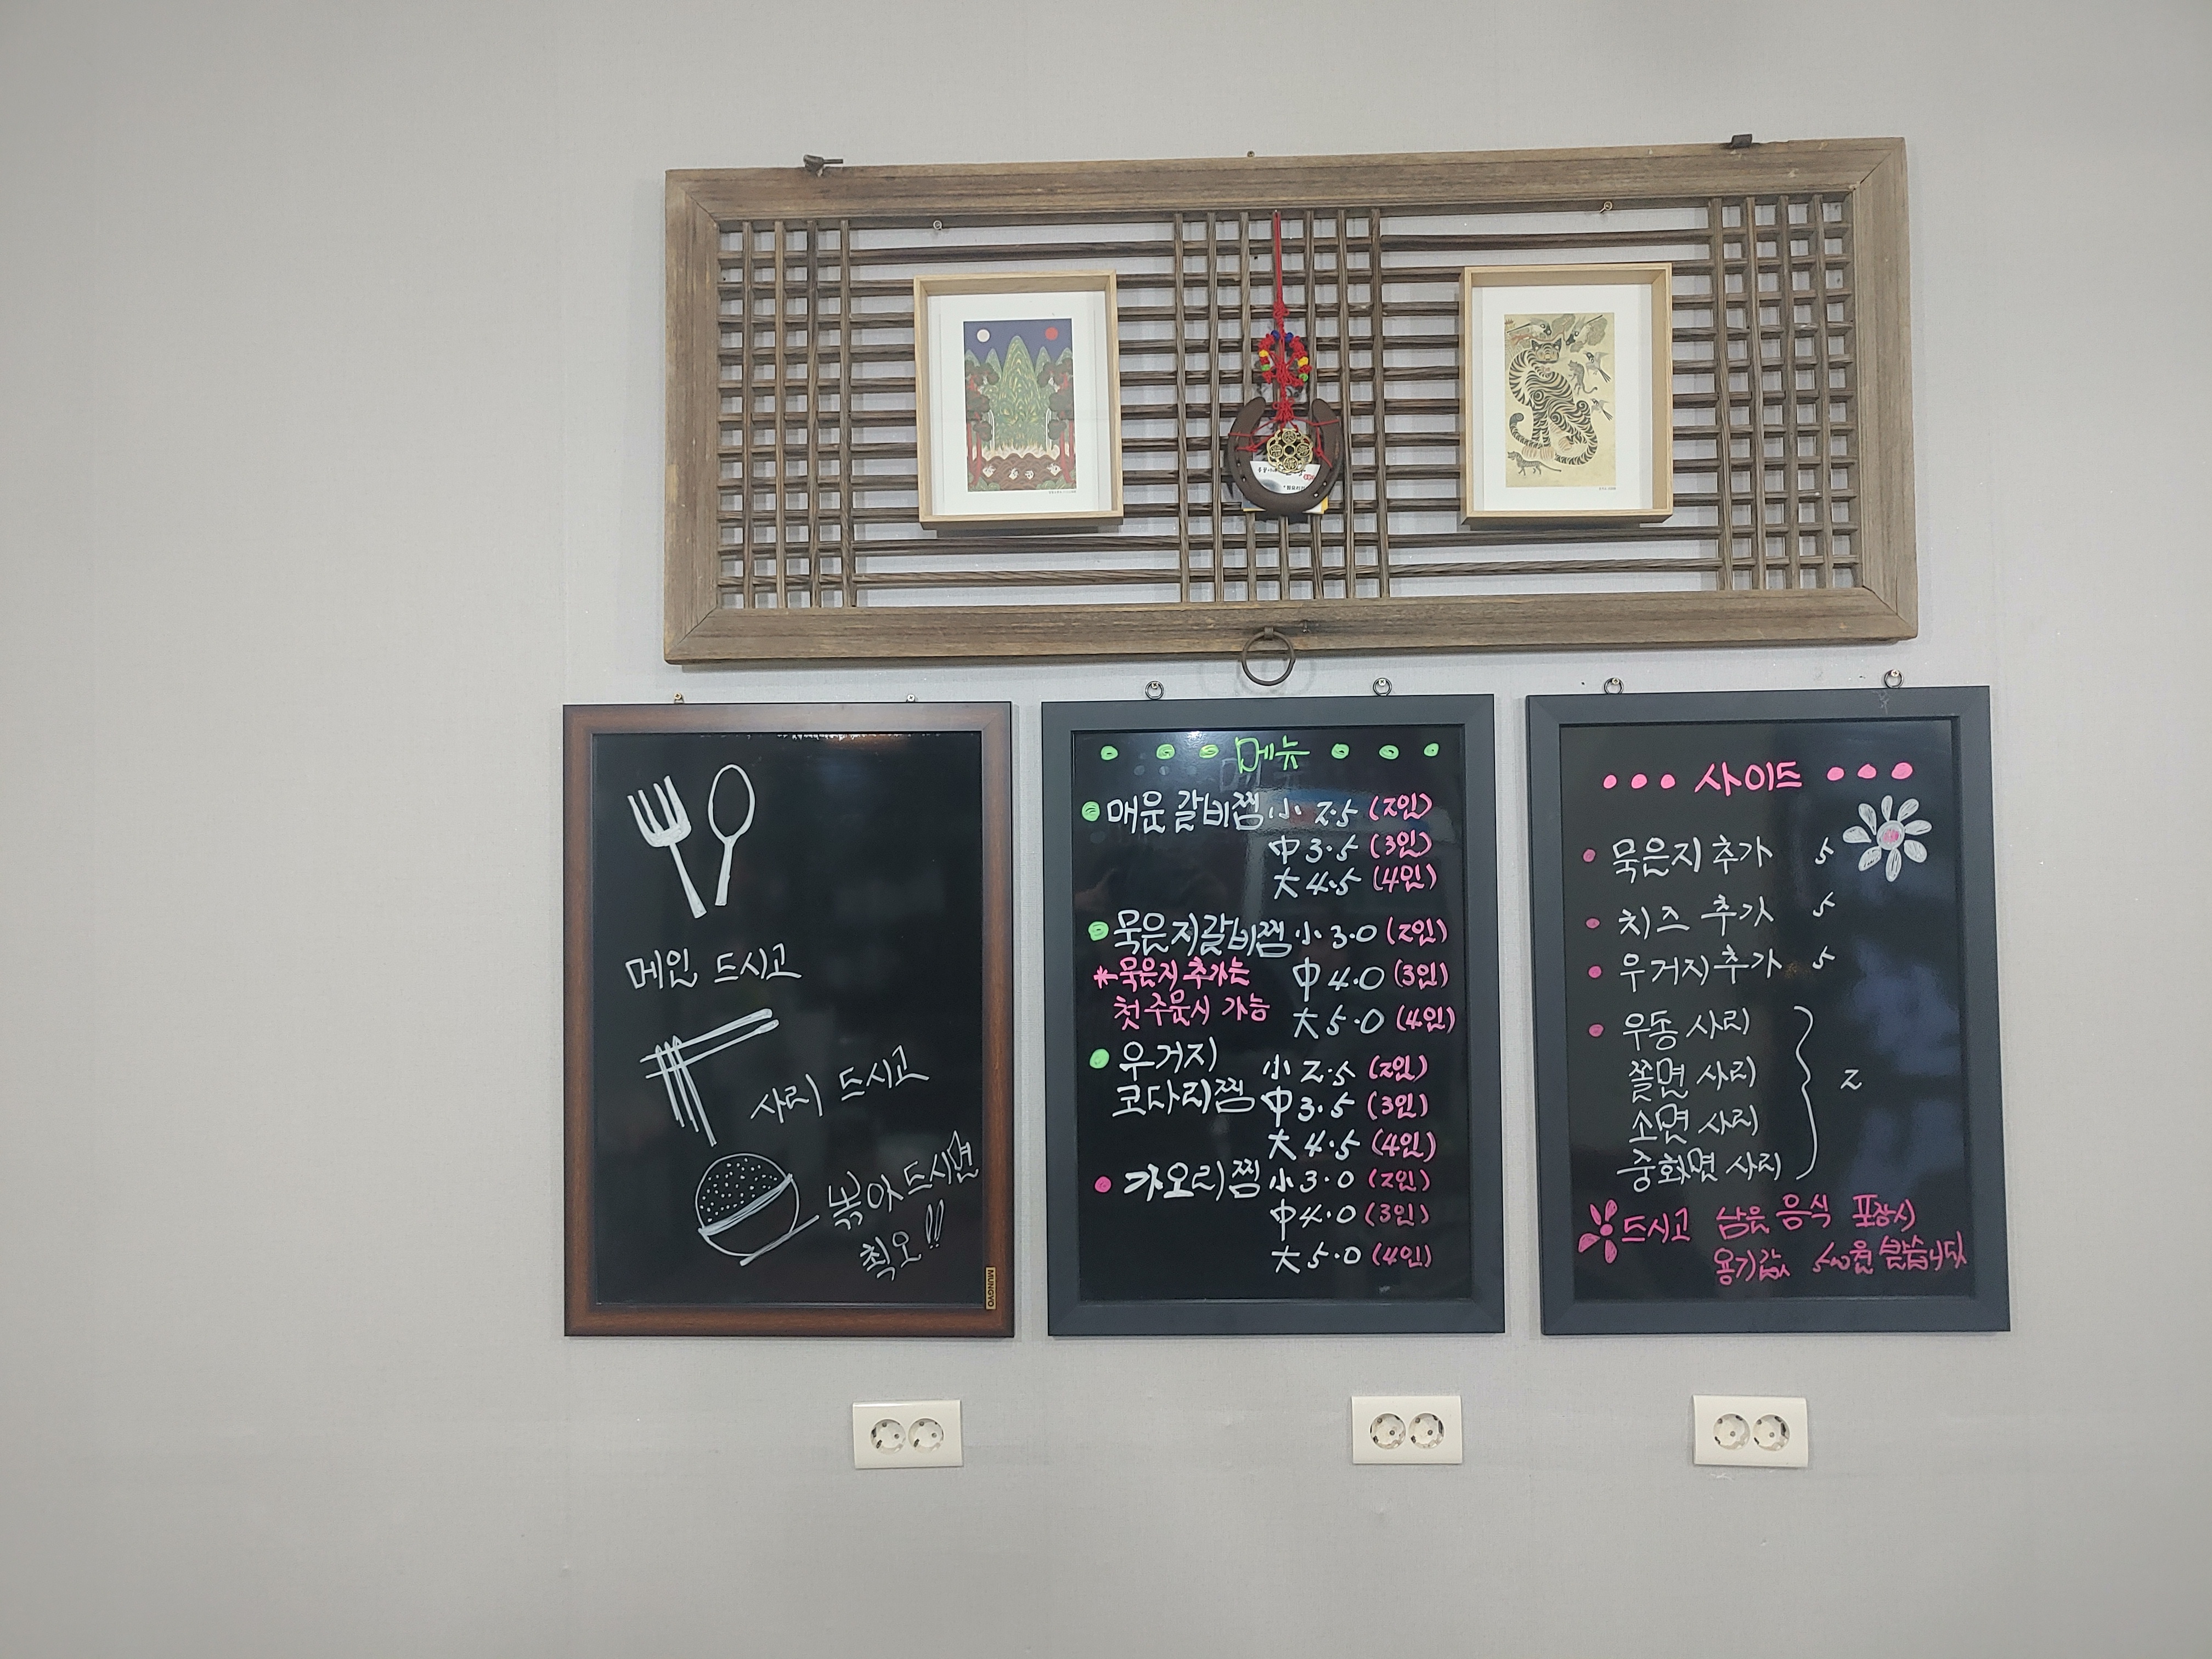 메인 드시고
사리 드시고
볶아 드시면
최고!!
MUNGYO
메뉴
매운 갈비찜 小 2.5 (2인)
中 3.5 (3인)
大 4.5 (4인)
묵은지갈비찜 小 3.0 (2인)
*묵은지 추가는 中 4.0 (3인)
첫 주문시 가능 大 5.0 (4인)
우거지 小 2.5 (2인)
코다리찜 中 3.5 (3인)
大 4.5 (4인)
가오리찜 小 3.0 (2인)
中 4.0 (3인)
大 5.0 (4인)
사이드
묵은지 추가 5
치즈 추가 5
우거지 추가 5
우동 사리
쫄면 사리 2
소면 사리
중화면 사리
드시고 남은 음식 포장시
용기값 500원 받습니다